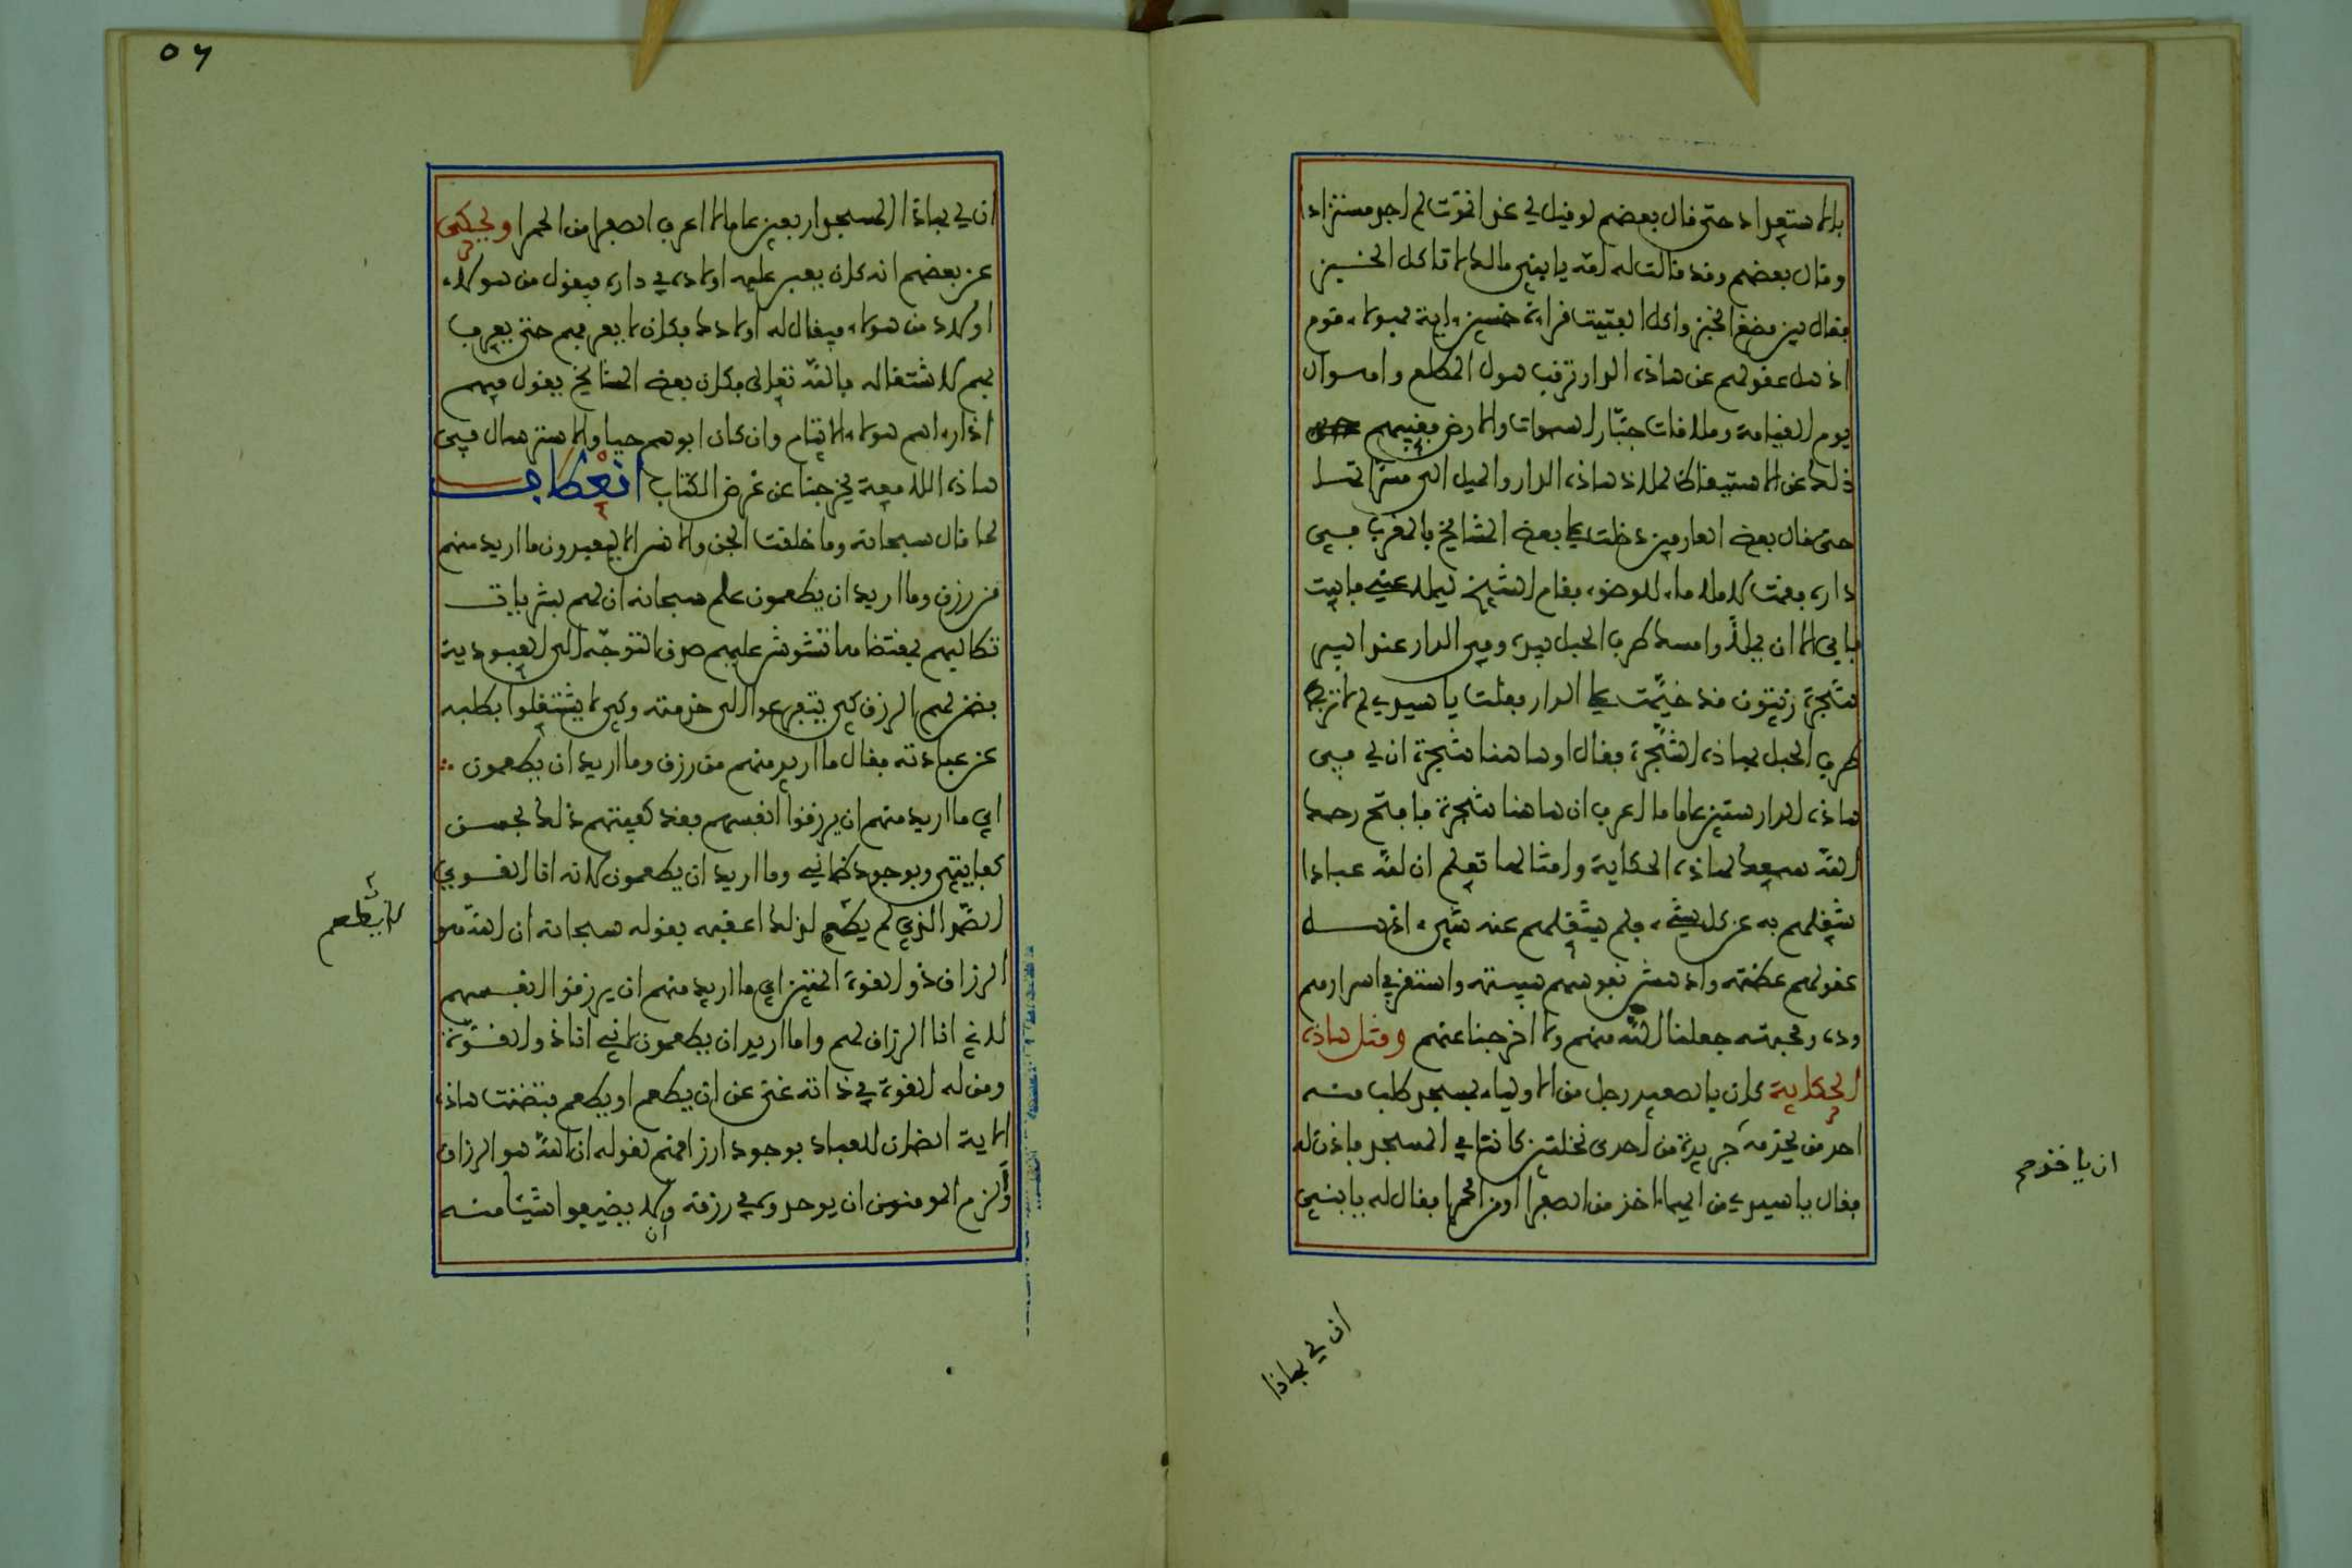 بالاستعداد حتى قال بعضهم لو قيل لي غدا تموت لم اجد مستزادا
وقال بعضهم وقد قالت له امه يا بني مالك لا تاكل الخبز
فقال بين مضغ الخبز واكل الفتيت قراءة خمسين ءاية فهولاء قوم
اذهل عقولهم عن هاذه الدار ترقب هول المطلع واهوال
يوم القيامة وملاقات جبار السموات والارض فغيبهم
ذلك عن الاستيقاظ لملاذ هاذه الدار والميل الى مسراتها
حتى قال بعض العارفين دخلت على بعض المشايخ بالمغرب في
داره فقمت لاملا ماء للوضوء فقام الشيخ ليملا عني فابيت
فابى الا ان يملا وامسك طرف الحبل بيده وفي الدار عند البير
شجرة زيتون قد خيمت على الدار فقلت يا سيدي لم لا تربط
طرف الحبل بهاذه الشجرة فقال او هاهنا شجرة ان لي في
هاذه الدار ستين عاما ما اعرف ان هاهنا شجرة فافتح رحمك
الله سمعك لهاذه الحكاية وامثالها تعلم ان لله عبادا
شغلهم به عن كل شيء ولم يشغلهم عنه شيء اذهل
عقولهم عظمته وادهش نفوسهم هيبته واستقر في اسرارهم
وده ومحبته جعلنا الله منهم ولا اخرجنا عنهم ومثل هاذه
الحكاية كان بالصعيد رجل من الاولياء بمسجد طلب منه
احد من يخدمه جريدة من احدى نخلتين كانتا في المسجد فاذن له
فقال يا سيدي من ايهما ءاخذ من الصفرا او من الحمرا فقال له يا بني
ان ياخذ
ان لي بهاذا
٥٦
ان لي بهاذا المسجد اربعين عاما لا اعرف الصفرا من الحمرا ويحكى
عن بعضهم انه كان يعبر عليه اولاده في داره فيقول من هولاء
اولاد من هولاء فيقال له اولادك فكان لا يعرفهم حتى يعرف
بهم لاشتغاله بالله تعالى وكان بعض المشايخ يقول فيهم
اذا رءاهم هولاء الايتام وان كان ابوهم حيا والاسترسال في
هاذه اللامعة يخرجنا عن غرض الكتاب انعطاف
لما قال سبحانه وما خلقت الجن والانس الا ليعبدون ما اريد منهم
من رزق وما اريد ان يطعمون علم سبحانه ان لهم بشريات
تطالبهم بمقتضاها تشوش عليهم صدق التوجه الى العبودية
فضمن لهم الرزق كي يتفرغوا الى خدمته وكي لا يشتغلوا بطلبه
عن عبادته فقال ما اريد منهم من رزق وما اريد ان يطعمون
اي ما اريد منهم ان يرزقوا انفسهم فقد كفيتهم ذلك بحسن
كفايتي وبوجود ضماني وما اريد ان يطعمون لانه انا القوي
الصمد الذي لم يطعم لذلك اعقبه بقوله سبحانه ان الله هو
الرزاق ذو القوة المتين اي ما اريد منهم ان يرزقوا انفسهم
لاني انا الرزاق لهم وما اريد ان يطعمون لاني انا ذو القوة
ومن له القوة في ذاته غني عن ان يطعم او يطعم فتضمنت هاذه
الاية الضمان للعباد بوجود ارزاقهم لقوله ان الله هو الرزاق
والزم المومنون ان يوحدوه في رزقه وان لا يضيعوا شيئا منه
لا يطعم